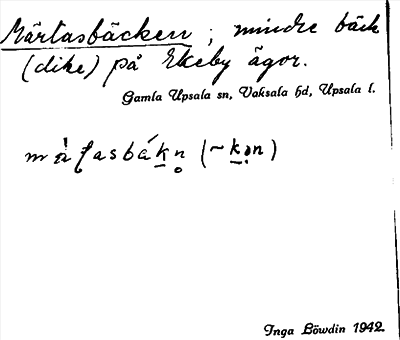 Märtasbäcken; mindre bäck
(dike) på Ekeby ägor.
Gamla Upsala sn, Vaksala hd, Upsala l.
Inga Löwdin 1942.